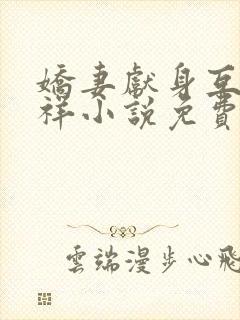 嬌妻獻身互
祥小說免費
雲端漫步心飛